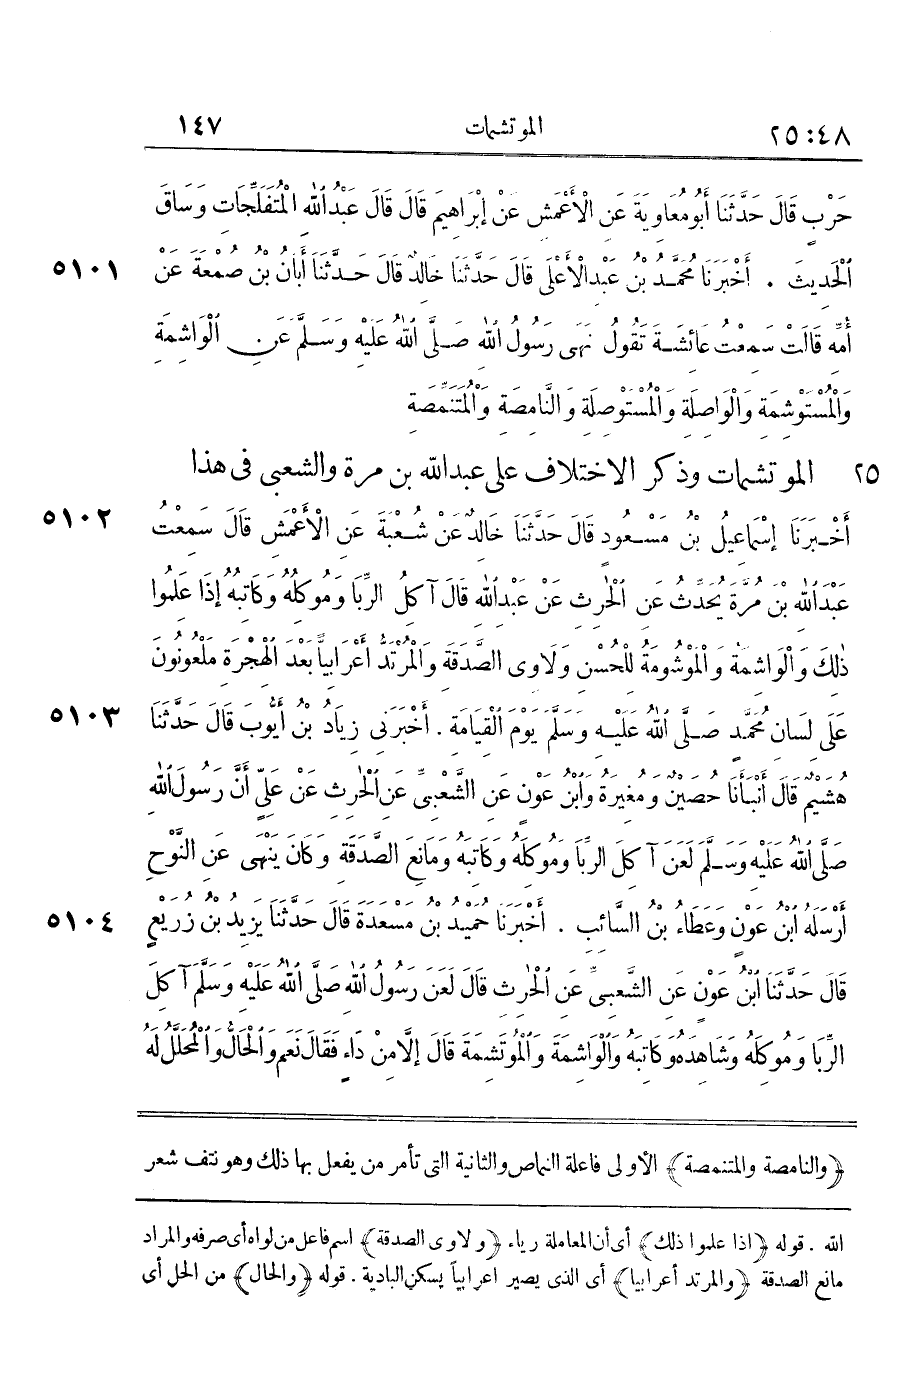 ٢٥:٤٨ الموتشمات ١٤٧
حَرْبٍ قَالَ حَدَّثَنَا أَبُو مُعَاوِيَةَ عَنِ الْأَعْمَشِ عَنْ إِبْرَاهِيمَ قَالَ قَالَ عَبْدُ اللهِ الْمُتَفَلِّجَاتِ وَسَاقَ
الْحَدِيثَ . أَخْبَرَنَا مُحَمَّدُ بْنُ عَبْدِ الْأَعْلَى قَالَ حَدَّثَنَا خَالِدٌ قَالَ حَدَّثَنَا أَبَانُ بْنُ صَمْعَةَ عَنْ ٥١٠١
أُمِّهِ قَالَتْ سَمِعْتُ عَائِشَةَ تَقُولُ نَهَى رَسُولُ اللهِ صَلَّى اللهُ عَلَيْهِ وَسَلَّمَ عَنِ الْوَاشِمَةِ
وَالْمُسْتَوْشِمَةِ وَالْوَاصِلَةِ وَالْمُسْتَوْصِلَةِ وَالنَّامِصَةِ وَالْمُتَنَمِّصَةِ
٢٥ الموتشمات وذكر الاختلاف على عبد الله بن مرة والشعبى فى هذا
أَخْبَرَنَا إِسْمَاعِيلُ بْنُ مَسْعُودٍ قَالَ حَدَّثَنَا خَالِدٌ عَنْ شُعْبَةَ عَنِ الْأَعْمَشِ قَالَ سَمِعْتُ ٥١٠٢
عَبْدَ اللهِ بْنَ مُرَّةَ يُحَدِّثُ عَنِ الْحٰرِثِ عَنْ عَبْدِ اللهِ قَالَ آكِلُ الرِّبَا وَمُوكِلُهُ وَكَاتِبُهُ إِذَا عَلِمُوا
ذٰلِكَ وَالْوَاشِمَةُ وَالْمَوْشُومَةُ لِلْحُسْنِ وَلَاوِى الصَّدَقَةِ وَالْمُرْتَدُّ أَعْرَابِيًّا بَعْدَ الْهِجْرَةِ مَلْعُونُونَ
عَلَى لِسَانِ مُحَمَّدٍ صَلَّى اللهُ عَلَيْهِ وَسَلَّمَ يَوْمَ الْقِيَامَةِ . أَخْبَرَنِى زِيَادُ بْنُ أَيُّوبَ قَالَ حَدَّثَنَا ٥١٠٣
هُشَيْمٌ قَالَ أَنْبَأَنَا حُصَيْنٌ وَمُغِيرَةُ وَابْنُ عَوْنٍ عَنِ الشَّعْبِىِّ عَنِ الْحٰرِثِ عَنْ عَلِىٍّ أَنَّ رَسُولَ اللهِ
صَلَّى اللهُ عَلَيْهِ وَسَلَّمَ لَعَنَ آكِلَ الرِّبَا وَمُوكِلَهُ وَكَاتِبَهُ وَمَانِعَ الصَّدَقَةِ وَكَانَ يَنْهَى عَنِ النَّوْحِ
أَرْسَلَهُ ابْنُ عَوْنٍ وَعَطَاءُ بْنُ السَّائِبِ . أَخْبَرَنَا حُمَيْدُ بْنُ مَسْعَدَةَ قَالَ حَدَّثَنَا يَزِيدُ بْنُ زُرَيْعٍ ٥١٠٤
قَالَ حَدَّثَنَا ابْنُ عَوْنٍ عَنِ الشَّعْبِىِّ عَنِ الْحٰرِثِ قَالَ لَعَنَ رَسُولُ اللهِ صَلَّى اللهُ عَلَيْهِ وَسَلَّمَ آكِلَ
الرِّبَا وَمُوكِلَهُ وَشَاهِدَهُ وَكَاتِبَهُ وَالْوَاشِمَةَ وَالْمُوتَشِمَةَ قَالَ إِلَّا مِنْ دَاءٍ فَقَالَ نَعَمْ وَالْحَالُّ وَالْمُحَلَّلُ لَهُ
﴿والنامصة والمتنمصة﴾ الأولى فاعلة النماص والثانية التى تأمر من يفعل بها ذلك وهو نتف شعر
الله . قوله ﴿اذا علموا ذلك﴾ أى أن المعاملة رياء ﴿ولاوى الصدقة﴾ اسم فاعل من لواه أى صرفه والمراد
مانع الصدقة ﴿والمرتد أعرابيا﴾ أى الذى يصير اعرابياً يسكن البادية . قوله ﴿والحال﴾ من الحل أى